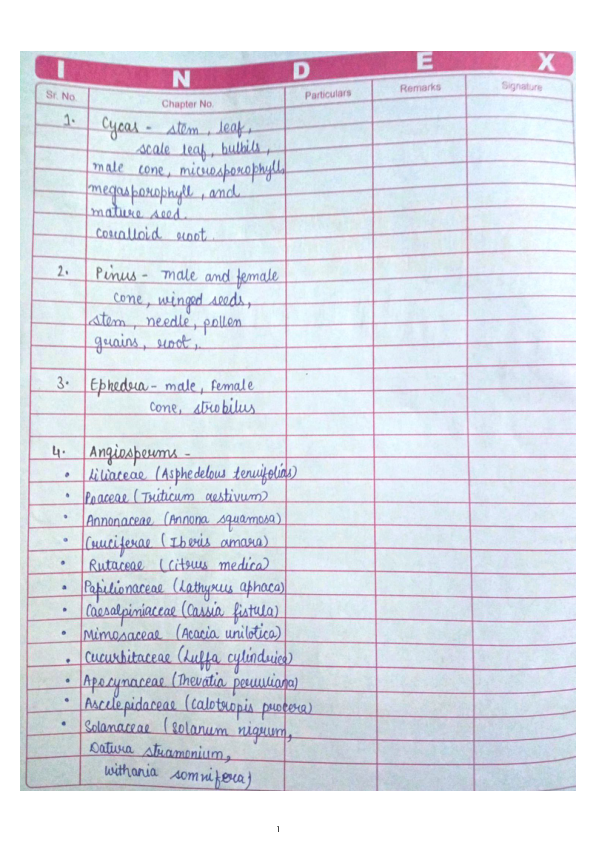 I N D E X
Sr. No. Chapter No. Particulars Remarks Signature
1. Cycas - stem, leaf,
scale leaf, bulbils,
male cone, microsporophyll,
megasporophyll, and
mature seed.
coralloid root.
2. Pinus - male and female
cone, winged seeds,
stem, needle, pollen
grains, root,.
3. Ephedra - male, female
cone, strobilus
4. Angiosperms -
• Liliaceae (Asphedelous tenuifolias)
• Poaceae (Triticum aestivum)
• Annonaceae (Annona squamosa)
• Cruciferae (Iberis amara)
• Rutaceae (Citrus medica)
• Papilionaceae (Lathyrus aphaca)
• Caesalpiniaceae (Cassia fistula)
• Mimosaceae (Acacia unilotica)
• Cucurbitaceae (Luffa cylindrica)
• Apocynaceae (Thevatia peruviana)
• Ascelepidaceae (Calotropis procera)
• Solanaceae (Solanum nigrum,
Datura stramonium,
withania somnifera)
1